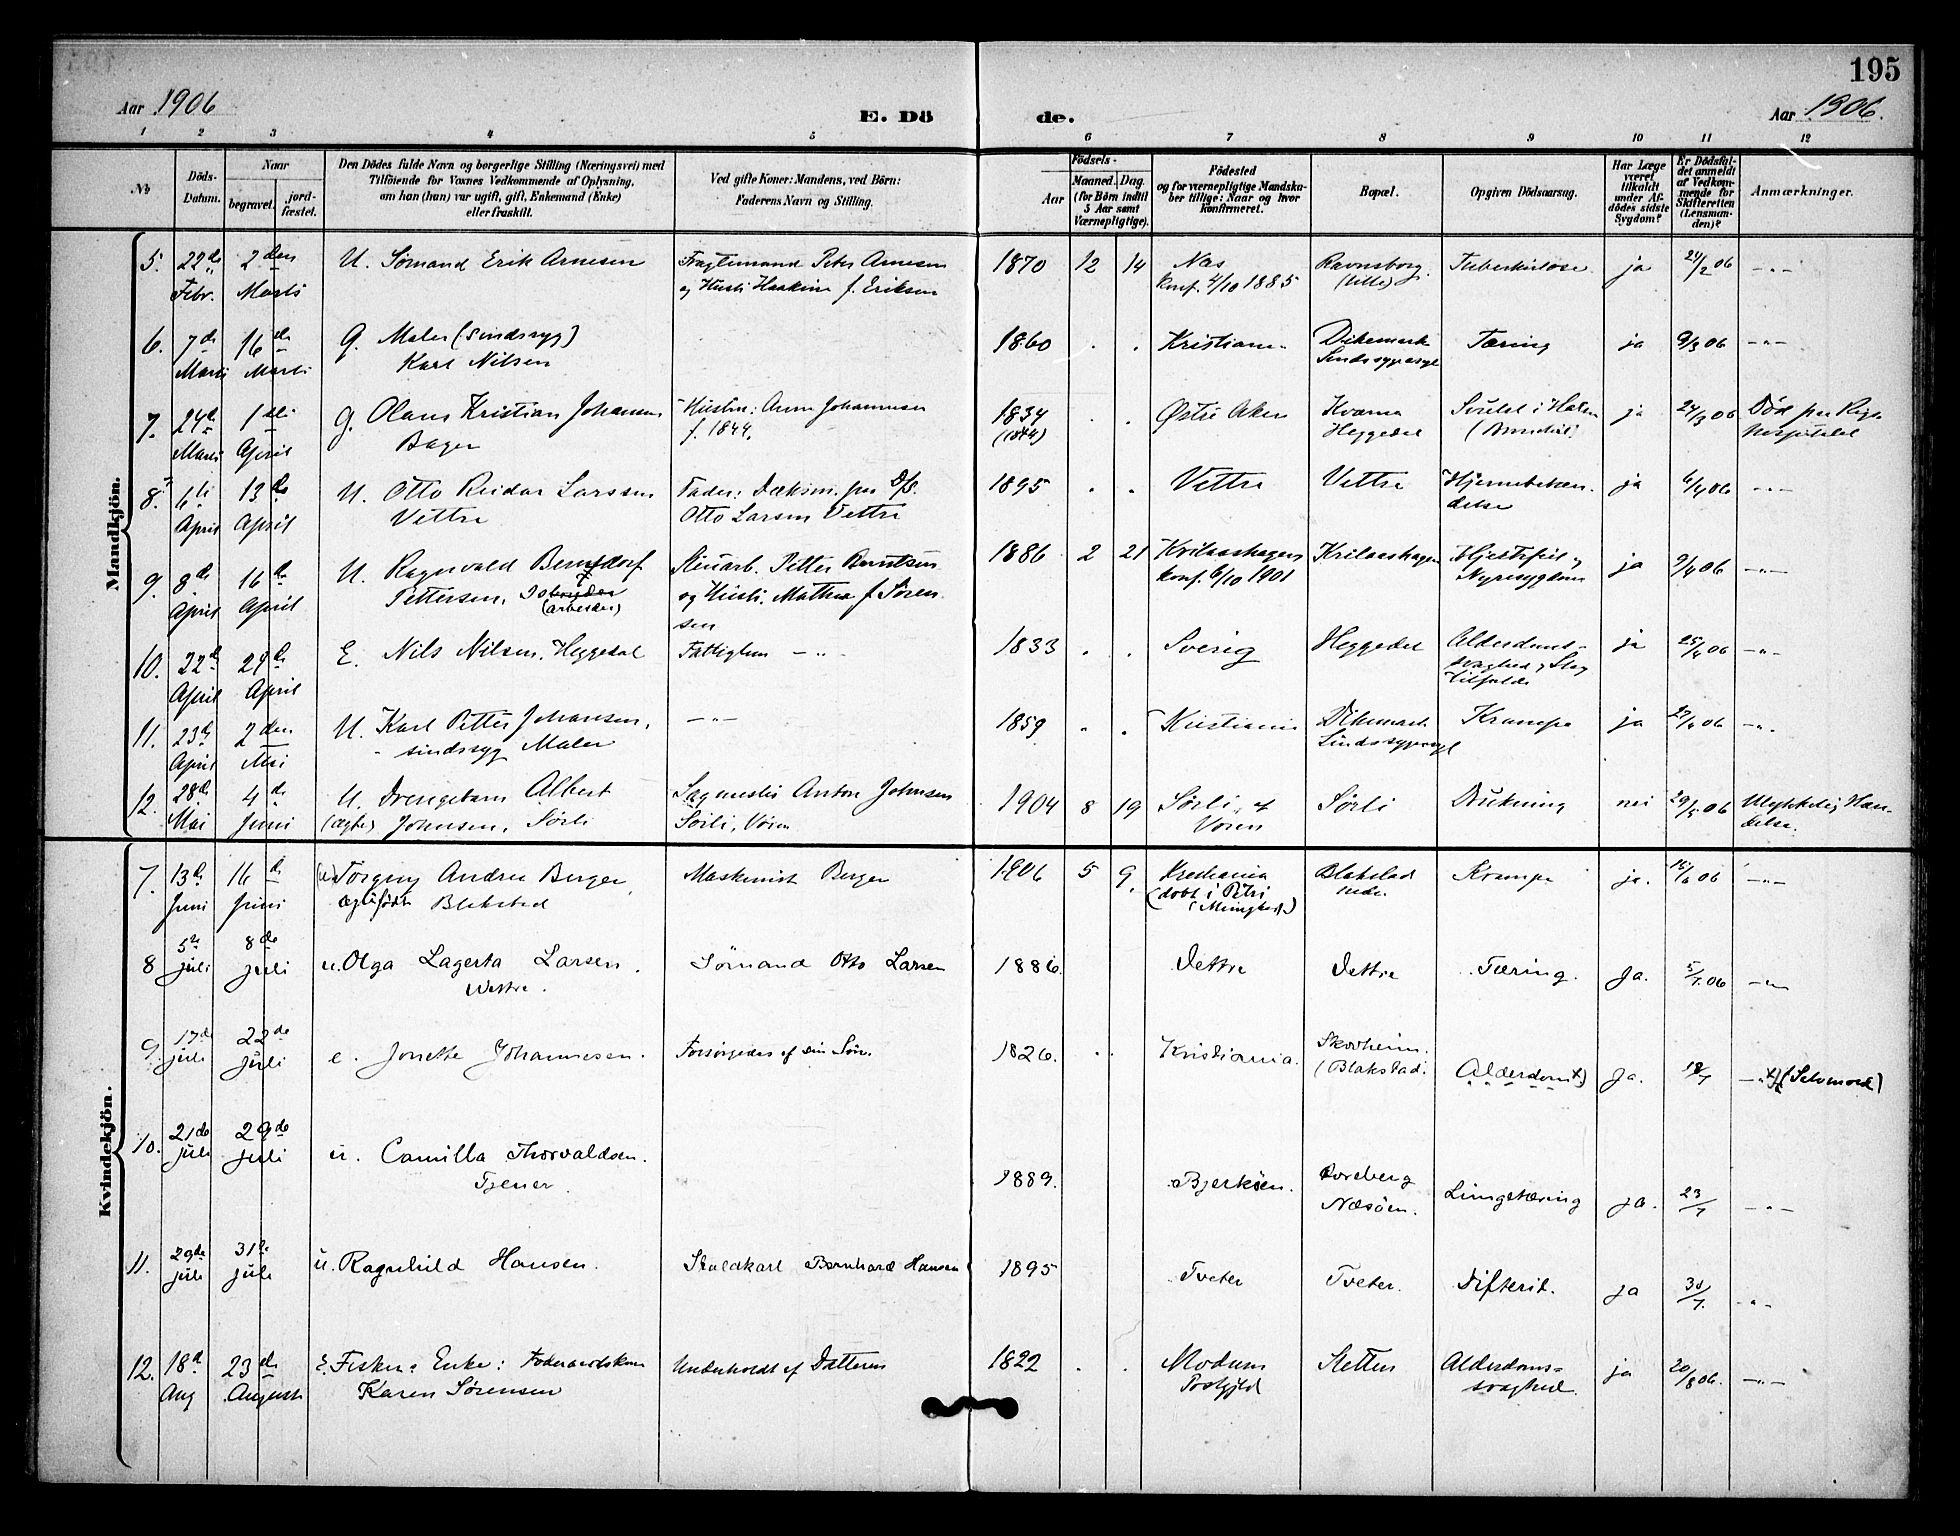 195
Aar 1906
E. Dö
de.
Aar 1906.
1 2 3 4 5 6 7 8 9 10 11 12
No
Döds-
Datum.
Naar
begravet.
jord-
fæstet.
Den Dödes fulde Navn og borgerlige Stilling (Næringsvei) med
Tilföiende for Voxnes Vedkommende af Oplysning,
om han (hun) var ugift, gift, Enkemand (Enke)
eller fraskilt.
Ved gifte Koner: Mandens, ved Börn:
Faderens Navn og Stilling.
Födsels-
Aar
Maaned. Dag.
(for Börn indtil
5 Aar samt
Værnepligtige).
Födested
og for værnepligtige Mandska-
ber tillige: Naar og hvor
Konfirmeret.
Bopæl.
Opgiven Dödsaarsag.
Har Læge
været
tilkaldt
under Af-
dödes sidste
Sygdom?
Er Dödsfal-
det anmeldt
af Vedkom-
mende for
Skifteretten
(Lensman-
den)?
Anmærkninger.
Mandkjön.
5. 22de 2den U. Sömand Erik Arnesen Fragtemand Peter Arnesen 1870 12 14 Nes Ravnsborg Tuberkulose ja 24/2 06 -"-
Febr. Marts og Hustr. Haakine f. Eriksen konf. 4/10 1885 (Ville)
6. 7de 16de G. Maler (sindssyg) 1860 . . Kristiania Dikemark Tæring ja 9/3 06 -"-
Marts Marts Karl Nilsen Sindssygeasyl
7. 24de 1ste G. Olaus Kristian Johansen Hustru: Anne Johannesen 1834 . . Østre Aker Kværna ja 24/3 06 Död paa Rigs-
Marts April Bager f. 1844. (1844) Heggedal hospitalet
8. 6te 13de U. Otto Reidar Larssen Fader: Dæksm. paa D/S. 1895 . . Vettre Vettre Hjernebetæn- ja 6/4 06 -"-
April April Vettre Otto Larsen Vettre delse
9. 8de 16de U. Ragnvald Berntdorf Petter Berntsen 1886 2 21 Hjertefeil og ja 9/4 06 -"-
April April Pettersen, (arbeider) og Hustr. Mathea f. Sören- konf. 6/10 1901 Nyresygdom
sen
10. 22de 29de E. Nils Nilsen, Heggedal Fattiglem -"- 1833 . . Sverig Heggedal Alderdoms- ja 25/4 06 -"-
April April svaghed, Slag-
tilfælde
11. 23de 2den U. Karl Petter Johansen, -"- 1859 . . Kristiania Dikemark Krampe ja 27/4 06 -"-
April Mai sindssyg Maler Sindssygeasyl
12. 28de 4de U. Drengebarn Albert Sagmester Anton Johnsen 1904 8 19 Sörli af Sörli Drukning nei 29/5 06 Ulykkelig Hæn-
Mai Juni (ægte) Johnsen, Sörli Sörli, Vöien Vöien delse.
Kvindekjön.
7. 13de 16de (u) Torgny Andrea Berger, Maskinist Berger 1906 5 9. Kristiania Blakstad Krampe ja. 15/6 06 -"-
Juni Juni ægtefödt Blakstad (döbt i Petri nedre
Menighed.)
8 5te 8de u. Olga Lagerta Larsen. Sömand Otto Larsen 1886. Vettre Vettre Tæring. Ja. 5/7.06 -"-
juli juli Vettre.
9. 17de 22de e. Jonette Johannesen. Forsörgedes af sin Sön. 1826. . . Kristiania. Skovheim. Alderdom x) Ja. 18/7 -"- x) (Selvmord)
juli juli (Blakstad.
10. 21de 29de u. Camilla Thorvaldsen. 1889. Bjerköen. Lungetæring ja. 23/7 -"-
juli juli Tjener. Næsöen.
11. 29de 31te u. Ragnhild Hansen. Staldkarl Bernhard Hansen 1895 Tveter Tveter. Difterit. ja 30/7. -"-
juli juli
12. 18de 23de E. Fisker-Enke: Underholdt af Datteren 1822 . . Modum Stetten Alderdoms- ja 20/8 06. -"-
Aug August Karen Sörensen Prestgjeld svaghed.